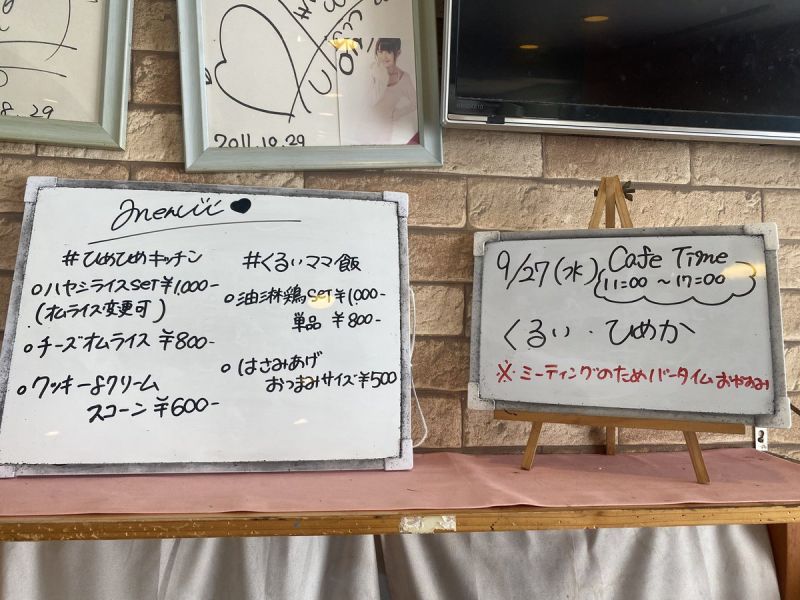 8.29
2011.10.29
menu
#ひめひめキッチン
○ハヤシライスset ¥1,000-
(オムライス変更可)
○チーズオムライス ¥800-
○クッキー&クリーム
スコーン ¥600-
#くるいママ飯
○油淋鶏set ¥1,000-
単品 ¥800-
○はさみあげ
おつまみサイズ¥500
9/27(水) Cafe Time
11:00 ～17:00
くるい・ひめか
※ミーティングのためバータイムおやすみ